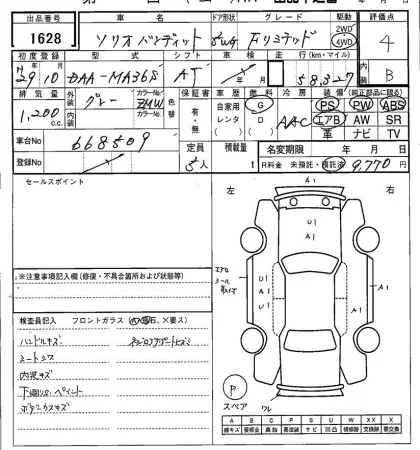 出品番号 車名 ドア形状 グレード 駆動 評価点
1628 ソリオバンディット 5WG Fリミテッド 2WD 4WD 4
初度登録 型式 シフト 車検 走行(km・マイル) 内装
H 29年10月 DAA-MA36S AT 年 月 58,327 B
排気量 外装 グレー カラーNo. ZMW 色替 保証書 車歴 燃料 冷房 装備(純正部品に限る)
1,200 c.c. 内装 カラーNo. 有・無 自家用 レンタ G D AAC PS PW ABS
エアB AW SR
革 ナビ TV
車台No 668509 定員 5人 積載量 t 名変期限 年 月 日
登録No R料金 未預託・預託済 9,770
セールスポイント
左 右
A1
U1
A1
U1
A1
A1
※注意事項記入欄(修復・不具合箇所および状態等)
検査員記入 フロントガラス(A、飛石、X要ス)
ハンドルキズ
シートシワ
内装キズ
P
スペア
ワレ
A B C P S U W XX X
線キズ 要板金 腐蝕 要塗装 サビ 凹凸 補修跡 交換跡 要交換